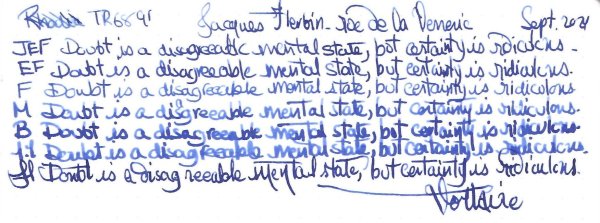 Rhodia TR68 91 Jacques Herbin - rose de la Sept. 2021
JEF Doubt is a disagreeable mental state, but certainty is ridiculous.
EF Doubt is a disagreeable mental state, but certainty is ridiculous.
F Doubt is a disagreeable mental state, but certainty is ridiculous.
M Doubt is a disagreeable mental state, but certainty is ridiculous.
B Doubt is a disagreeable mental state, but certainty is ridiculous.
1.1 Doubt is a disagreeable mental state, but certainty is ridiculous.
Doubt is a disagreeable mental state, but certainty is ridiculous.
Voltaire